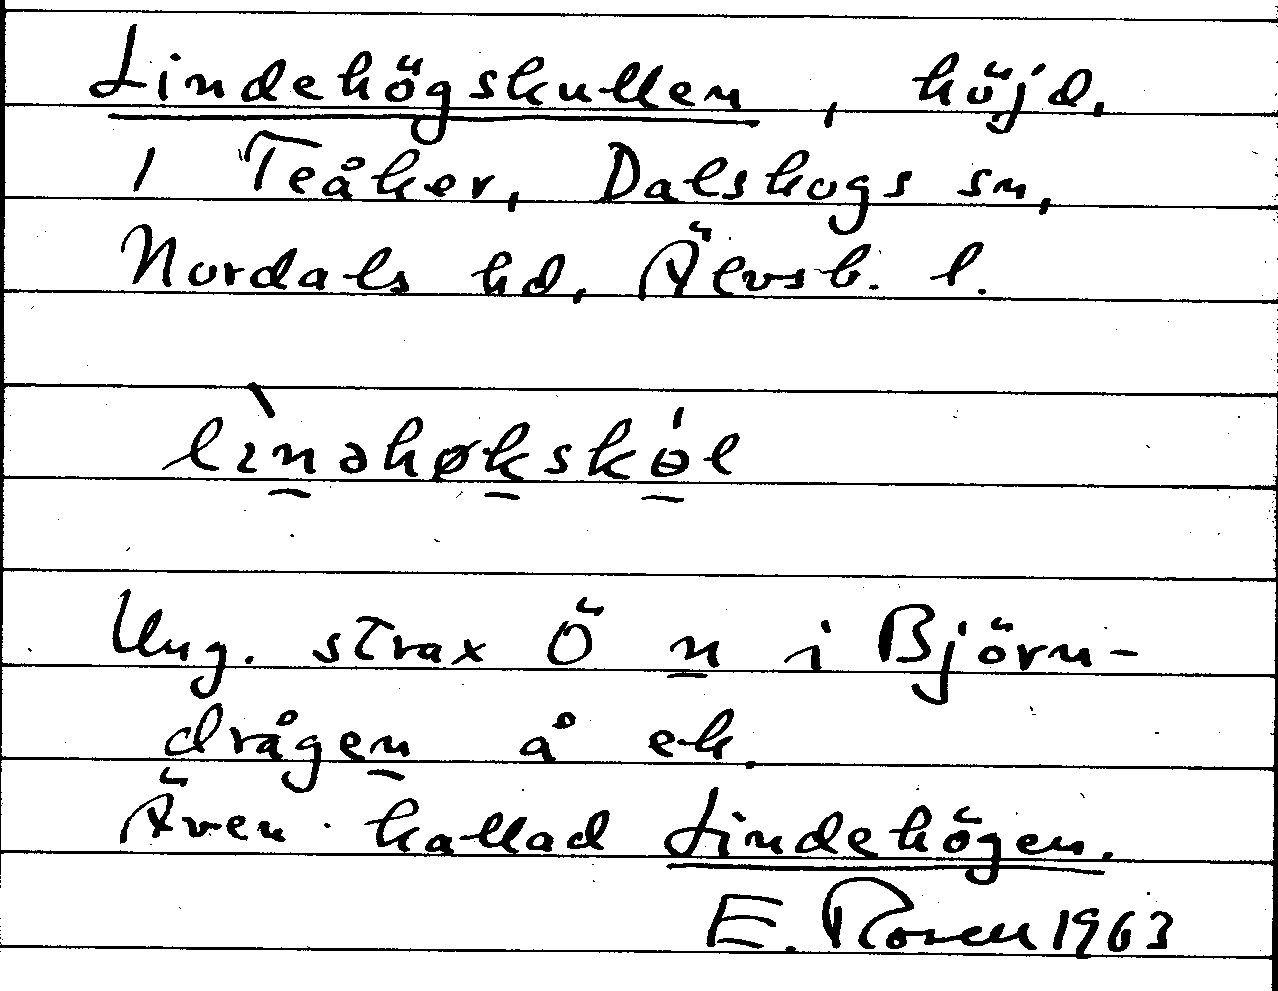 Lindehögskullen, höjd,
i Teåker, Dalskogs sn,
Nordals hd, Älvsb. l.
lìnəhøkskɵ́l
Ung. strax Ö n i Björn-
drågen å ek.
Även kallad Lindehögen.
E. Rosell 1963